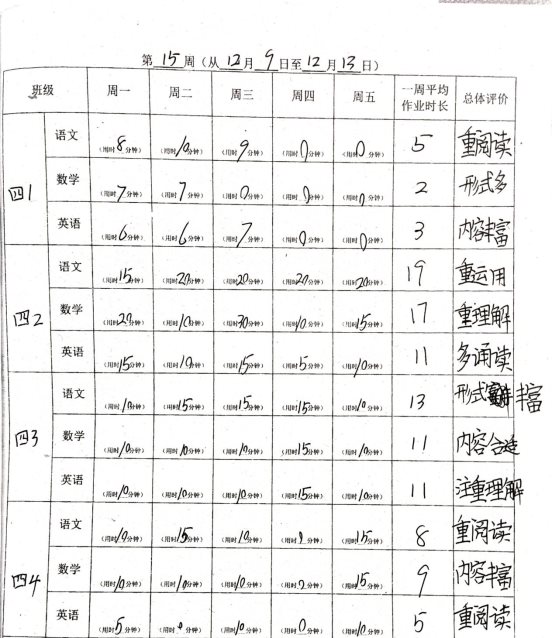 第 15 周（从 12 月 9 日至 12 月 13 日）
班级 周一 周二 周三 周四 周五 一周平均作业时长 总体评价
四1 语文 （用时8分钟） （用时10分钟） （用时9分钟） （用时0分钟） （用时0分钟） 5 重阅读
数学 （用时7分钟） （用时7分钟） （用时0分钟） （用时0分钟） （用时0分钟） 2 形式多
英语 （用时6分钟） （用时6分钟） （用时7分钟） （用时0分钟） （用时0分钟） 3 内容丰富
四2 语文 （用时15分钟） （用时20分钟） （用时20分钟） （用时20分钟） （用时20分钟） 19 重运用
数学 （用时20分钟） （用时10分钟） （用时30分钟） （用时10分钟） （用时15分钟） 17 重理解
英语 （用时15分钟） （用时10分钟） （用时15分钟） （用时5分钟） （用时10分钟） 11 多诵读
四3 语文 （用时10分钟） （用时15分钟） （用时15分钟） （用时15分钟） （用时10分钟） 13 形式丰富
数学 （用时10分钟） （用时10分钟） （用时10分钟） （用时15分钟） （用时10分钟） 11 内容合适
英语 （用时10分钟） （用时10分钟） （用时10分钟） （用时15分钟） （用时10分钟） 11 注重理解
四4 语文 （用时10分钟） （用时15分钟） （用时10分钟） （用时 分钟） （用时15分钟） 8 重阅读
数学 （用时10分钟） （用时10分钟） （用时10分钟） （用时 分钟） （用时15分钟） 9 内容丰富
英语 （用时5分钟） （用时 分钟） （用时10分钟） （用时0分钟） （用时10分钟） 5 重阅读